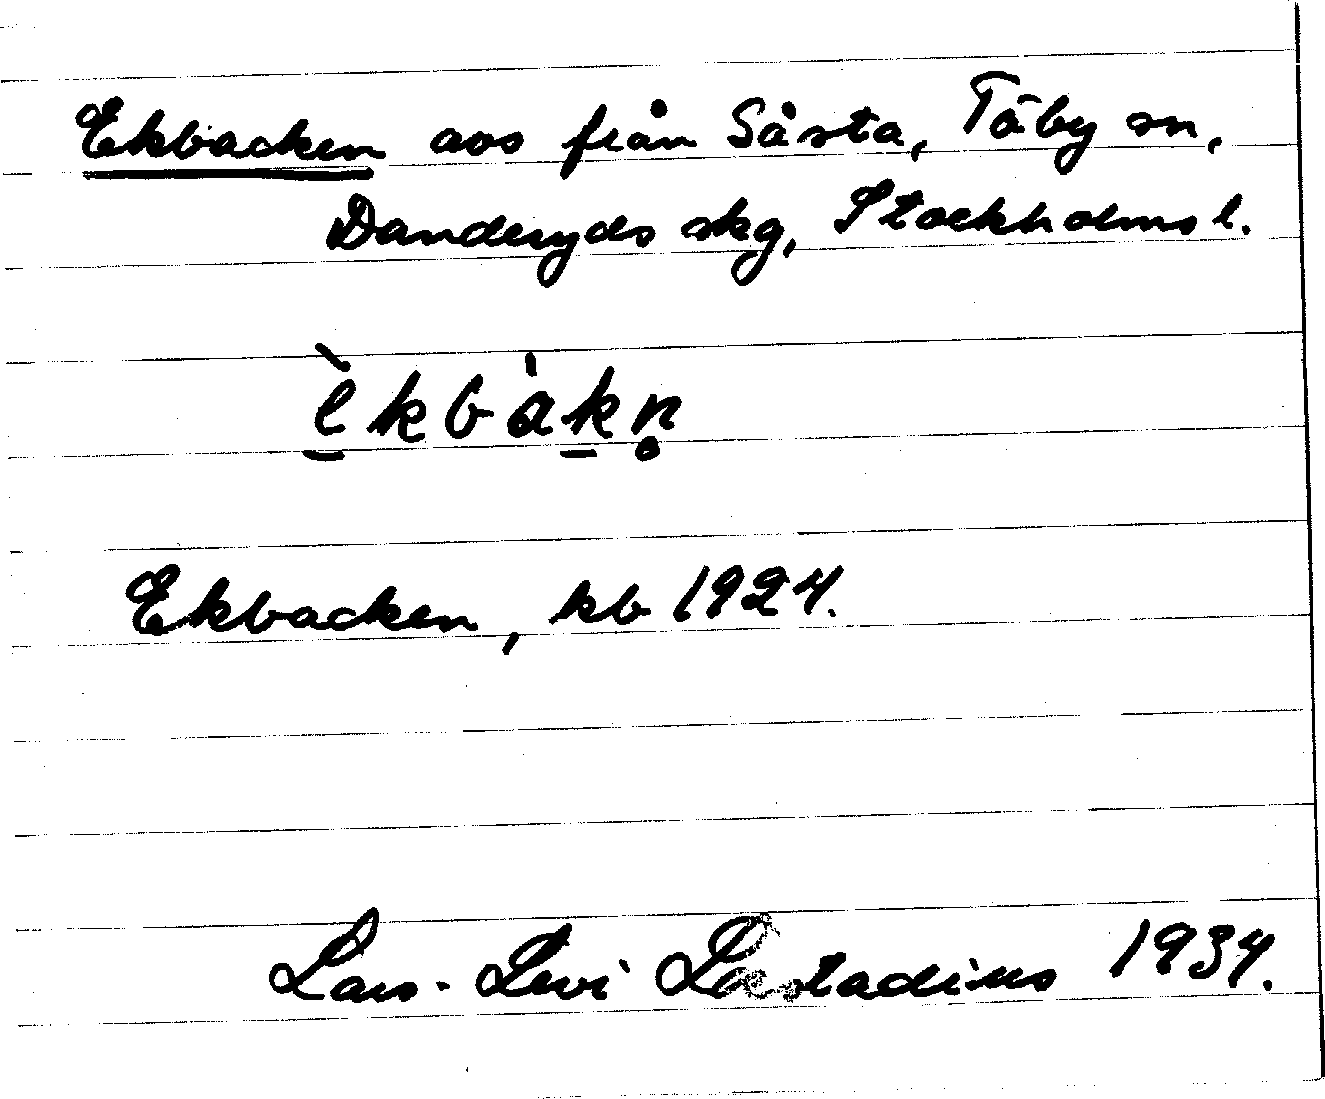 Ekbacken avs från Såsta, Täby sn,
Danderyds skg, Stockholms l.
è̱kbàḵn̥
Ekbacken, kb 1924.
Lars-Levi Læstadius 1934.